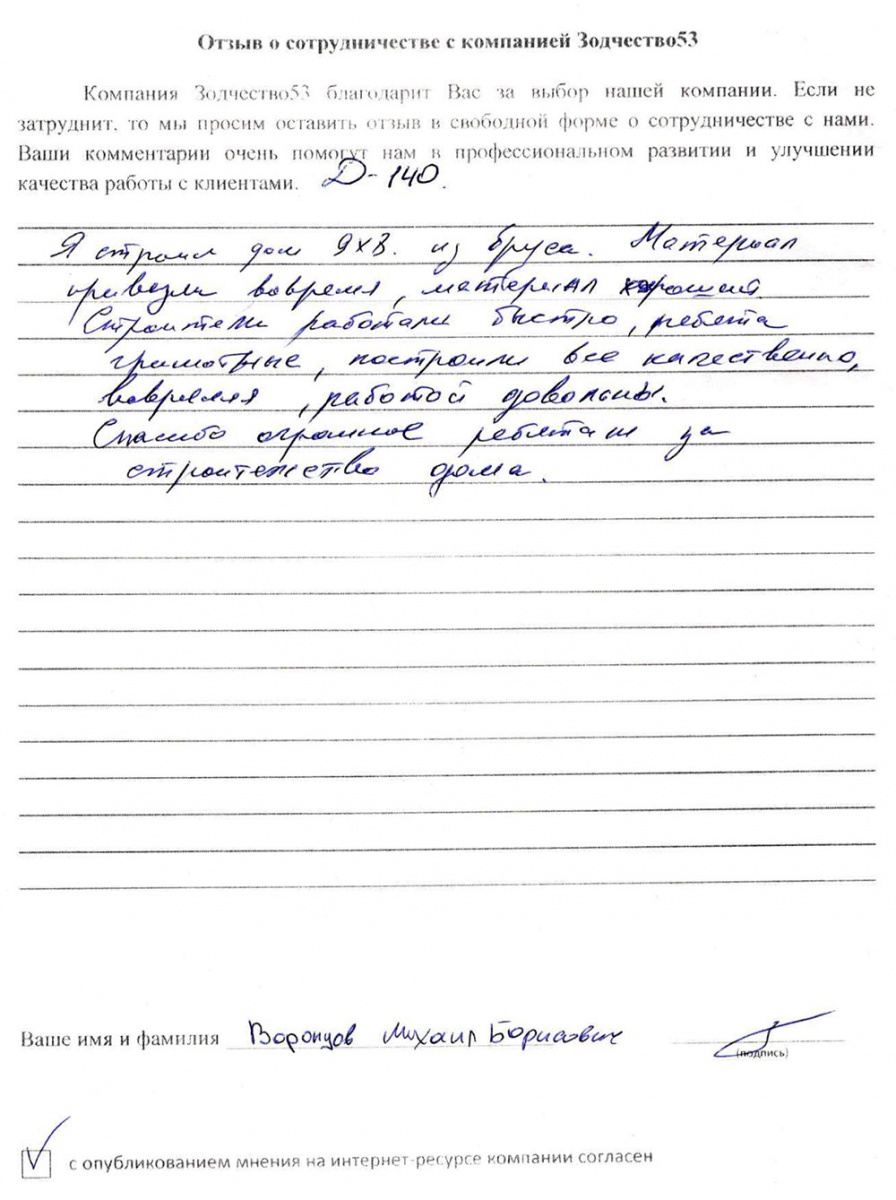 Отзыв о сотрудничестве с компанией Зодчество53
Компания Зодчество53 благодарит Вас за выбор нашей компании. Если не
затруднит, то мы просим оставить отзыв в свободной форме о сотрудничестве с нами.
Ваши комментарии очень помогут нам в профессиональном развитии и улучшении
качества работы с клиентами. Д-140.
Я строил дом 9х8. из бруса. Материал
привезли вовремя, материал хороший.
Строители работали быстро, ребята
грамотные, построили все качественно,
вовремя, работой довольны.
Спасибо огромное ребятам за
строительство дома.
Ваше имя и фамилия Воронцов Михаил Борисович
(подпись)
с опубликованием мнения на интернет-ресурсе компании согласен